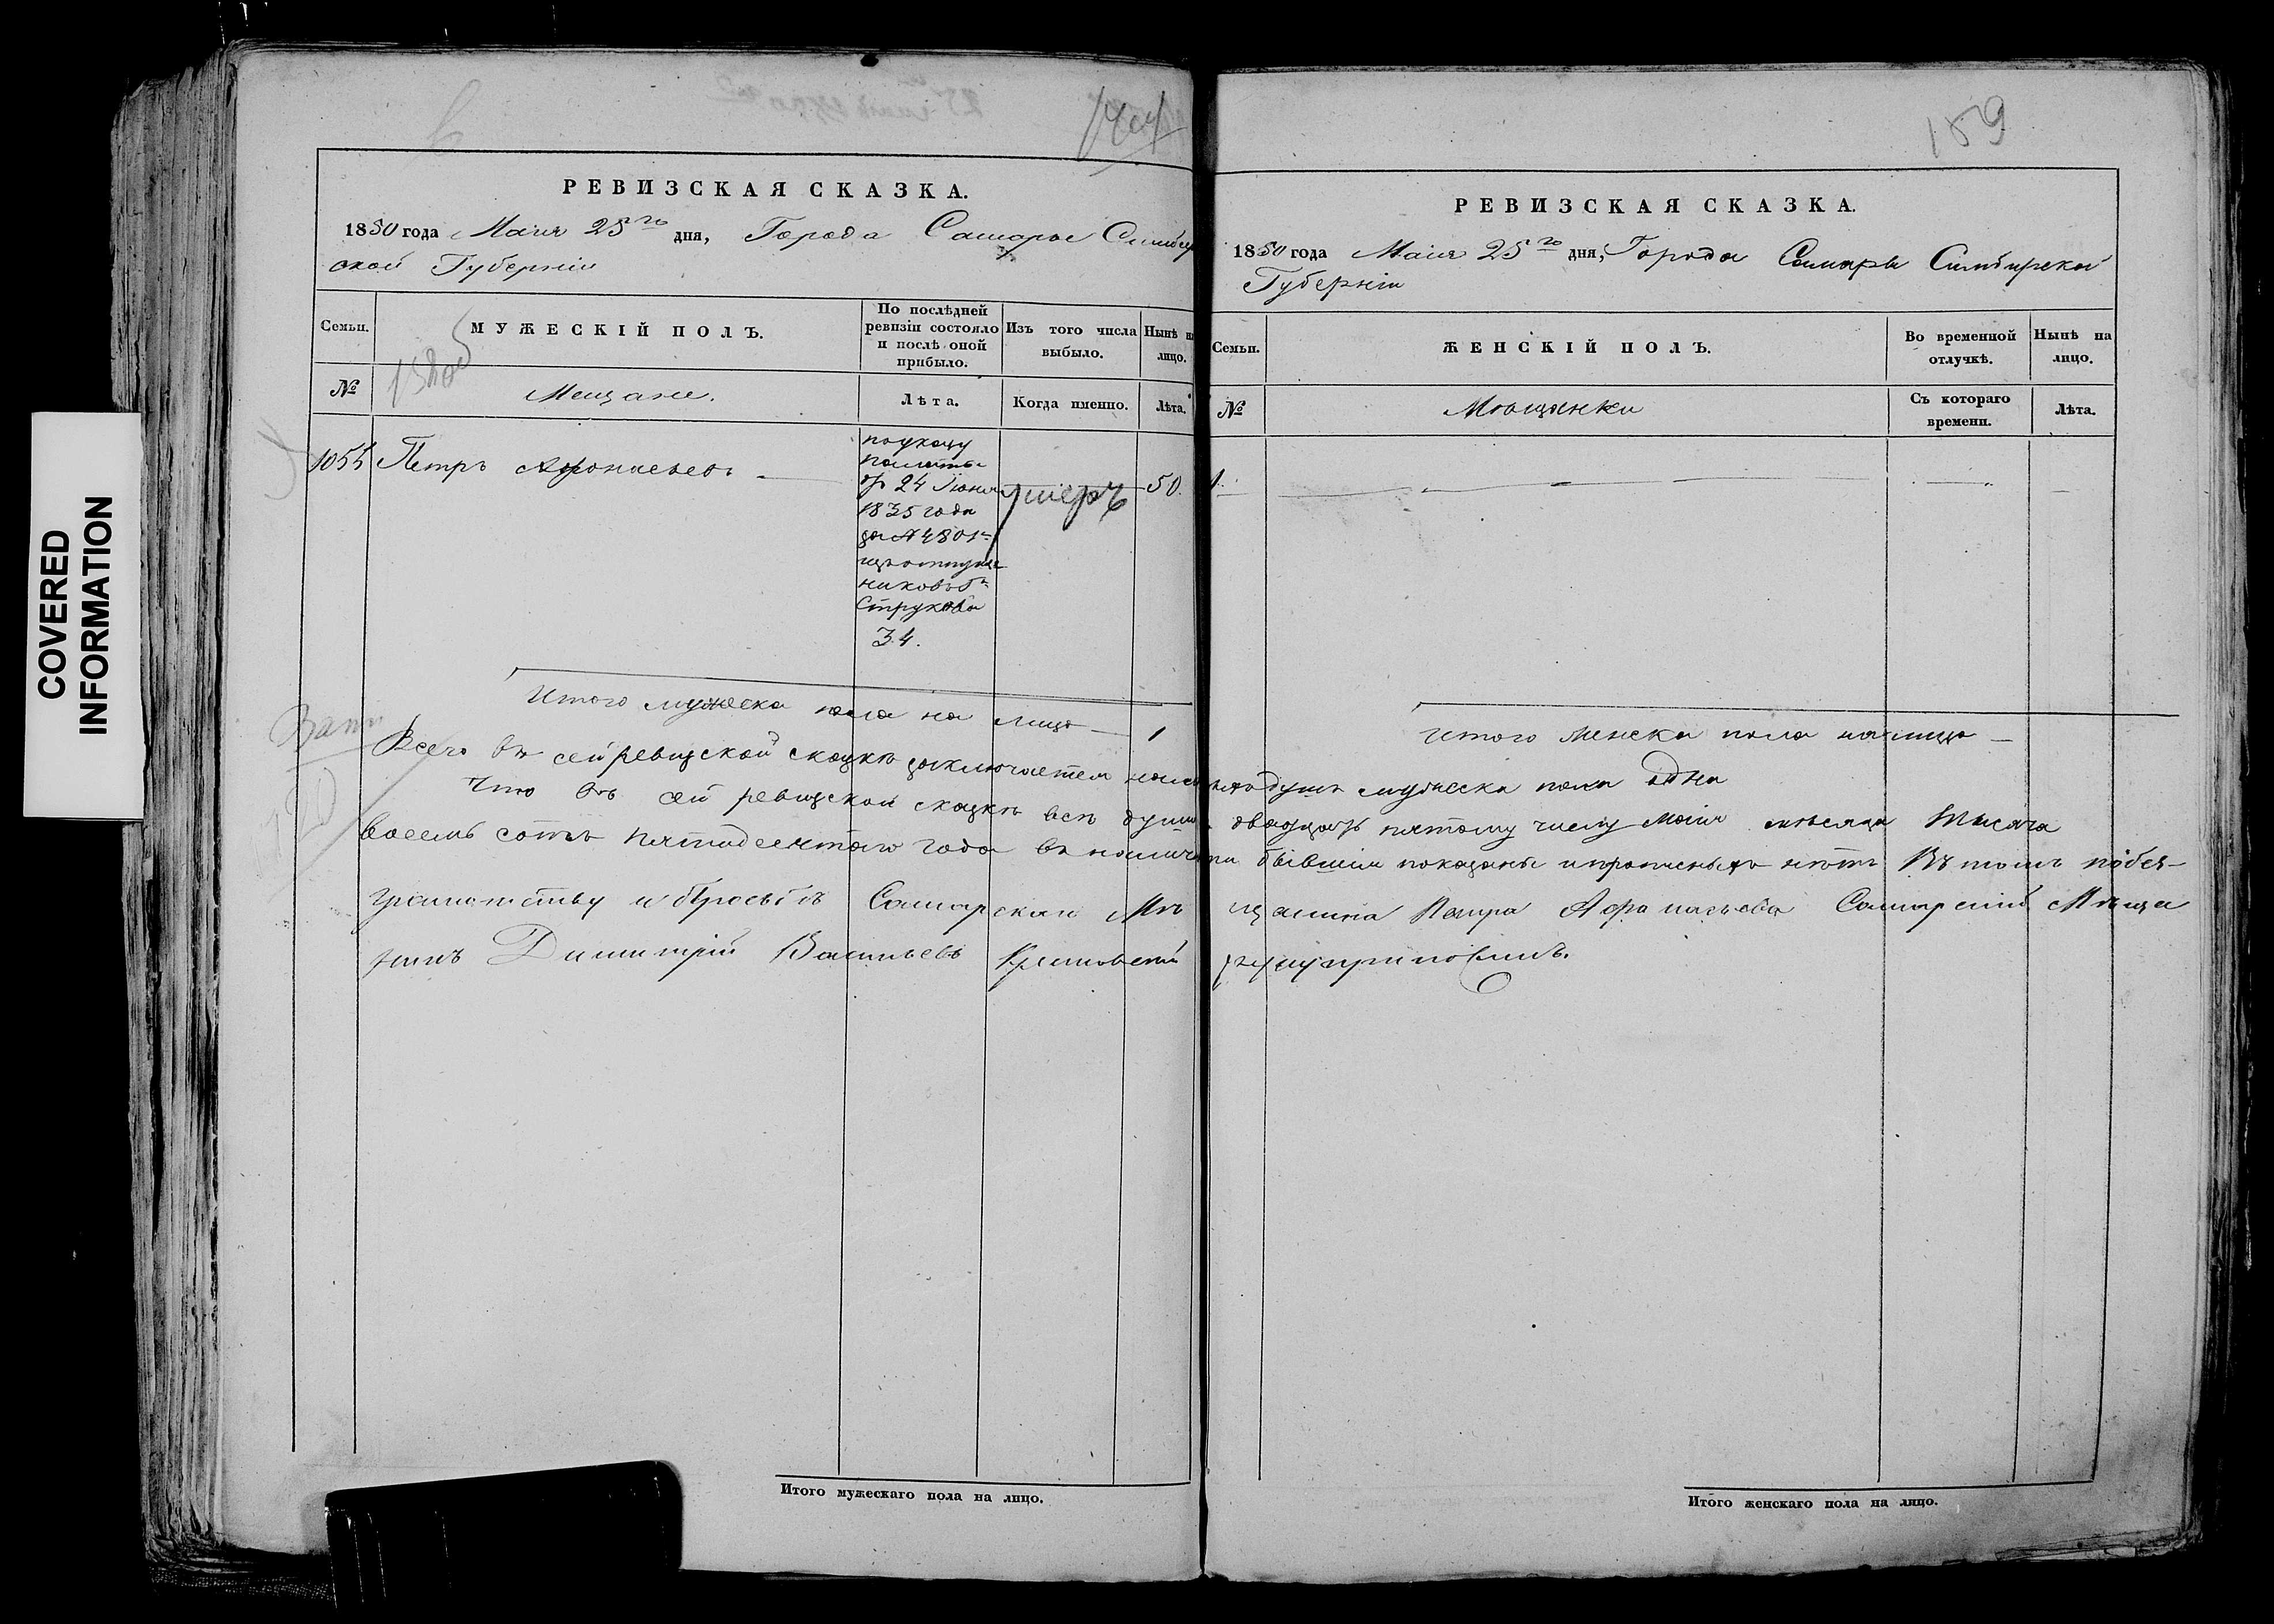 COVERED
INFORMATION
РЕВИЗСКАЯ СКАЗКА.
1850 года Маия 25го дня, Города Самары Симбир
ской Губерніи
Семьи. МУЖЕСКІЙ ПОЛЪ. По послѣдней ревизіи состояло и послѣ оной прибыло. Изъ того числа выбыло. Нынѣ на лицо.
№ Мещане. Лѣта. Когда именно. Лѣта.
1055 Петръ Афонасьевъ 50.
по указу
палаты
отъ 24 Іюня умеръ
1835 года
за № 4801
изъ отпуще
никовъ Гна
Струкова
34.
Итого мужеска пола на лицо 1
159
РЕВИЗСКАЯ СКАЗКА.
1850 года Маия 25го дня, Города Самары Симбирской
Губерніи
Семьи. ЖЕНСКІЙ ПОЛЪ. Во временной отлучкѣ. Нынѣ на лицо.
№ Мѣщанки Съ котораго времени. Лѣта.
1.
Итого женска пола налицо
Всего въ сей ревизской сказкѣ заключается налицо душъ мужеска пола одна
Что въ сей ревизской сказкѣ всѣ души двадцать пятому числу Маия мѣсяца тысяча
восемь сотъ пятидесятаго года въ наличіи бывшіи показаны и прописныхъ нѣтъ Въ томъ по без
грамотству и прозьбѣ Самарскаго Мѣщанина Петра Афанасьева Самарскій Мѣща
нинъ Димитрій Васильевъ руку приложилъ.
Итого мужескаго пола на лицо.
Итого женскаго пола на лицо.